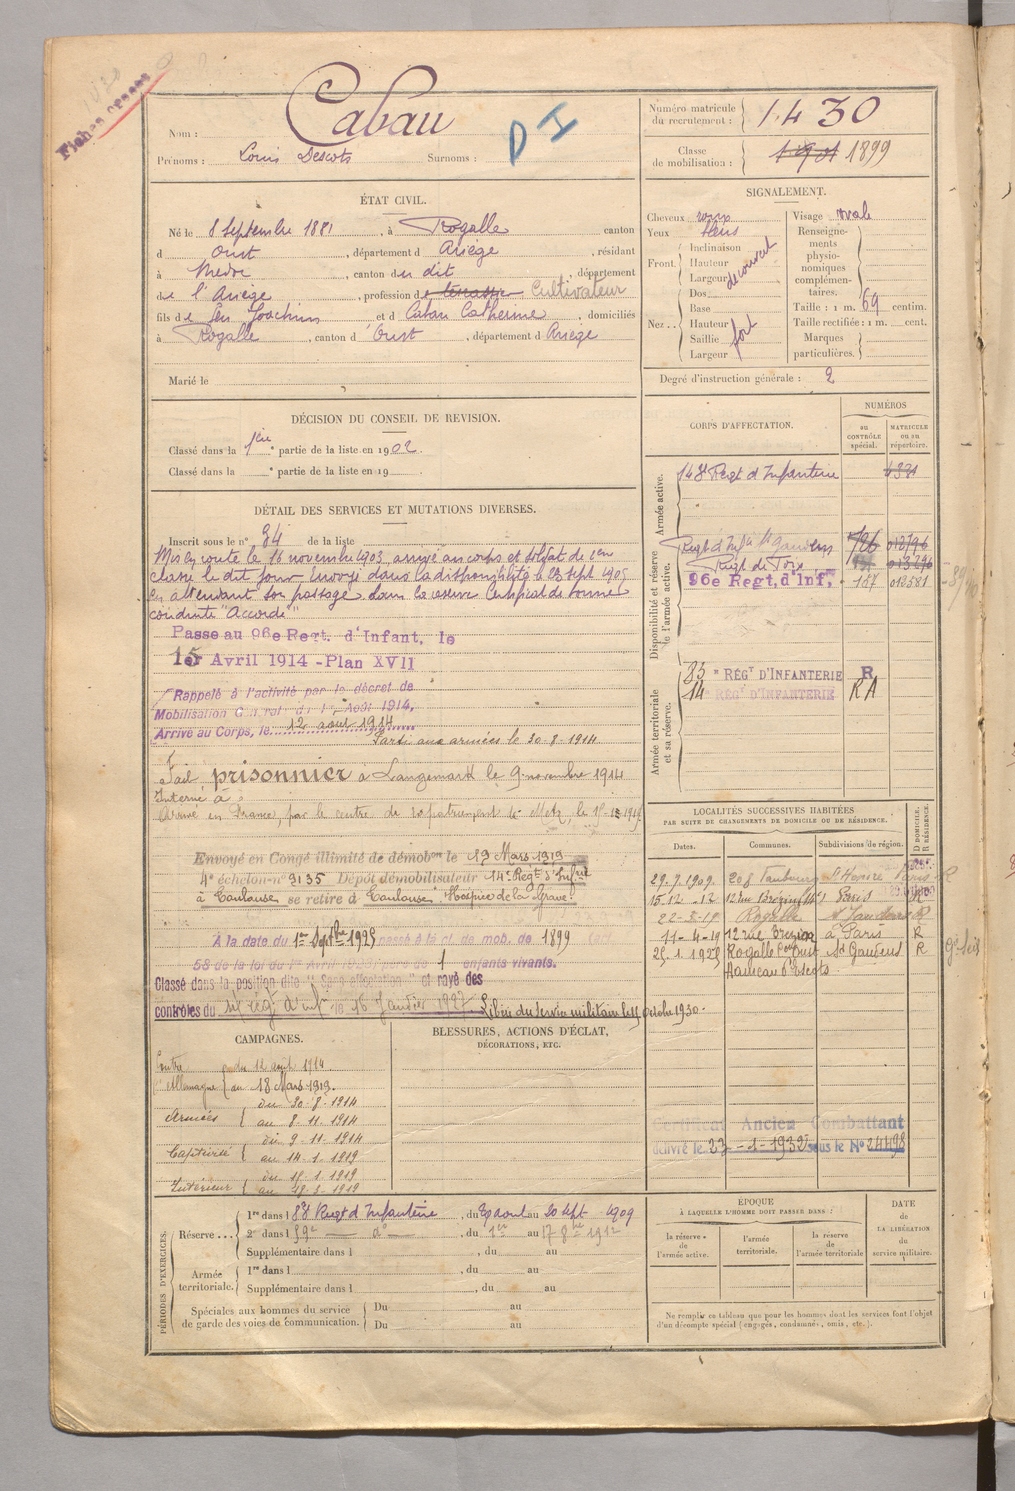 Fiches
Cabau
Nom :
Prénoms : Louis Descots Surnoms :
D I
Numéro matricule du recrutement : 1430
Classe de mobilisation : 1901 1899
ÉTAT CIVIL.
Né le 8 Septembre 1881, à Rogalle canton
d Oust, département d Ariège, résidant
à, canton du dit, département
de l'Ariège, profession de Cultivateur
fils de feu Joachim et d Cabau Catherine, domiciliés
à Rogalle, canton d'Oust, département d Ariège
Marié le
SIGNALEMENT.
Cheveux roux
Yeux bleus
Front. Inclinaison
Hauteur
Largeur
découvert
Nez .. Dos
Base
Hauteur
Saillie
Largeur
fort
Visage ovale
Renseignements physionomiques complémentaires.
Taille : 1 m. 69 centim.
Taille rectifiée : 1 m. cent.
Marques particulières.
Degré d'instruction générale : 2
DÉCISION DU CONSEIL DE REVISION.
Classé dans la 1ère partie de la liste en 1902.
Classé dans la e partie de la liste en 19
DÉTAIL DES SERVICES ET MUTATIONS DIVERSES.
Inscrit sous le n° 34 de la liste
Mis en route le 16 novembre 1903, arrivé au corps et soldat de 2em
classe le dit jour. Envoyé dans la disponibilité le 23 sept 1905
en attendant son passage dans la réserve Certificat de bonne
conduite "Accordé"
Passe au 96e Regt. d'Infant. le
Avril 1914 - Plan XVII
Rappelé à l'activité par le décret de
Mobilisation Général du 1er Août 1914,
Arrivé au Corps, le 12 août 1914
Parti aux armées le 30-8-1914
Fait prisonnier à Langemark le 9 novembre 1914
Interné à
Arrivé en France, par le centre de rapatriement de Metz, le
Envoyé en Congé illimité de démobon le 19 Mars 1919
4e échelon n° 9135 Dépôt démobilisateur 14e Régt d'Infrie
à Toulouse se retire à Toulouse Hospice de la Grave.
A la date du 1er Septbre 1925 passé à la cl. de mob. de 1899 (art.
58 de la loi du 1er Avril 1923) père de 1 enfants vivants.
Classé dans la position dite "Sans affectation" et rayé des
contrôles du régt d'inf le 16 Janvier 1927. Libéré du service militaire le 15 octobre 1930.
CORPS D'AFFECTATION.
NUMÉROS
au CONTRÔLE spécial.
MATRICULE ou au répertoire.
Armée active.
143e Regt d'Infanterie
Disponibilité et réserve de l'armée active.
Regt d'Infie St Gaudens 012796
Regt de Foix
96e Regt. d'Inf. 157 012581
Armée territoriale et sa réserve.
83 e RÉGt D'INFANTERIE R
14 e RÉGt D'INFANTERIE RA
LOCALITÉS SUCCESSIVES HABITÉES
PAR SUITE DE CHANGEMENTS DE DOMICILE OU DE RÉSIDENCE.
Dates. Communes. Subdivisions de région. D DOMICILE. R RÉSIDENCE.
29.7.1909. 208 Faubourg St Honoré Paris R
15-12-12 Paris R
22-3-19 Rogalle St Gaudens R
11-4-19 12 rue Brezin à Paris R
25.1.1925 Rogalle con Oust St Gaudens R
Hameau d'Escots
CAMPAGNES.
Contre l'Allemagne du 12 août 1914
au 18 Mars 1919.
Armées du 30-8-1914
au 8-11-1914
Captivité du 9-11-1914
au 14-1-1919
Intérieur du 15-1-1919
au 18-3-1919
BLESSURES, ACTIONS D'ÉCLAT,
DÉCORATIONS, ETC.
Certificat Ancien Combattant
délivré le 23-1-1932 sous le N° 24498
PÉRIODES D'EXERCICES.
Réserve ... 1re dans l 88e Regt d'Infanterie, du 30 aout au 20 sept 1909
2e dans l 59e — d° —, du 1er au 17 8bre 1912
Supplémentaire dans l, du au
Armée territoriale. 1re dans l, du au
Supplémentaire dans l, du au
Spéciales aux hommes du service de garde des voies de communication. Du au
Du au
ÉPOQUE
À LAQUELLE L'HOMME DOIT PASSER DANS :
la réserve de l'armée active.
l'armée territoriale.
la réserve de l'armée territoriale
DATE de LA LIBÉRATION du service militaire.
Ne remplir ce tableau que pour les hommes dont les services font l'objet
d'un décompte spécial (engagés, condamnés, omis, etc.).